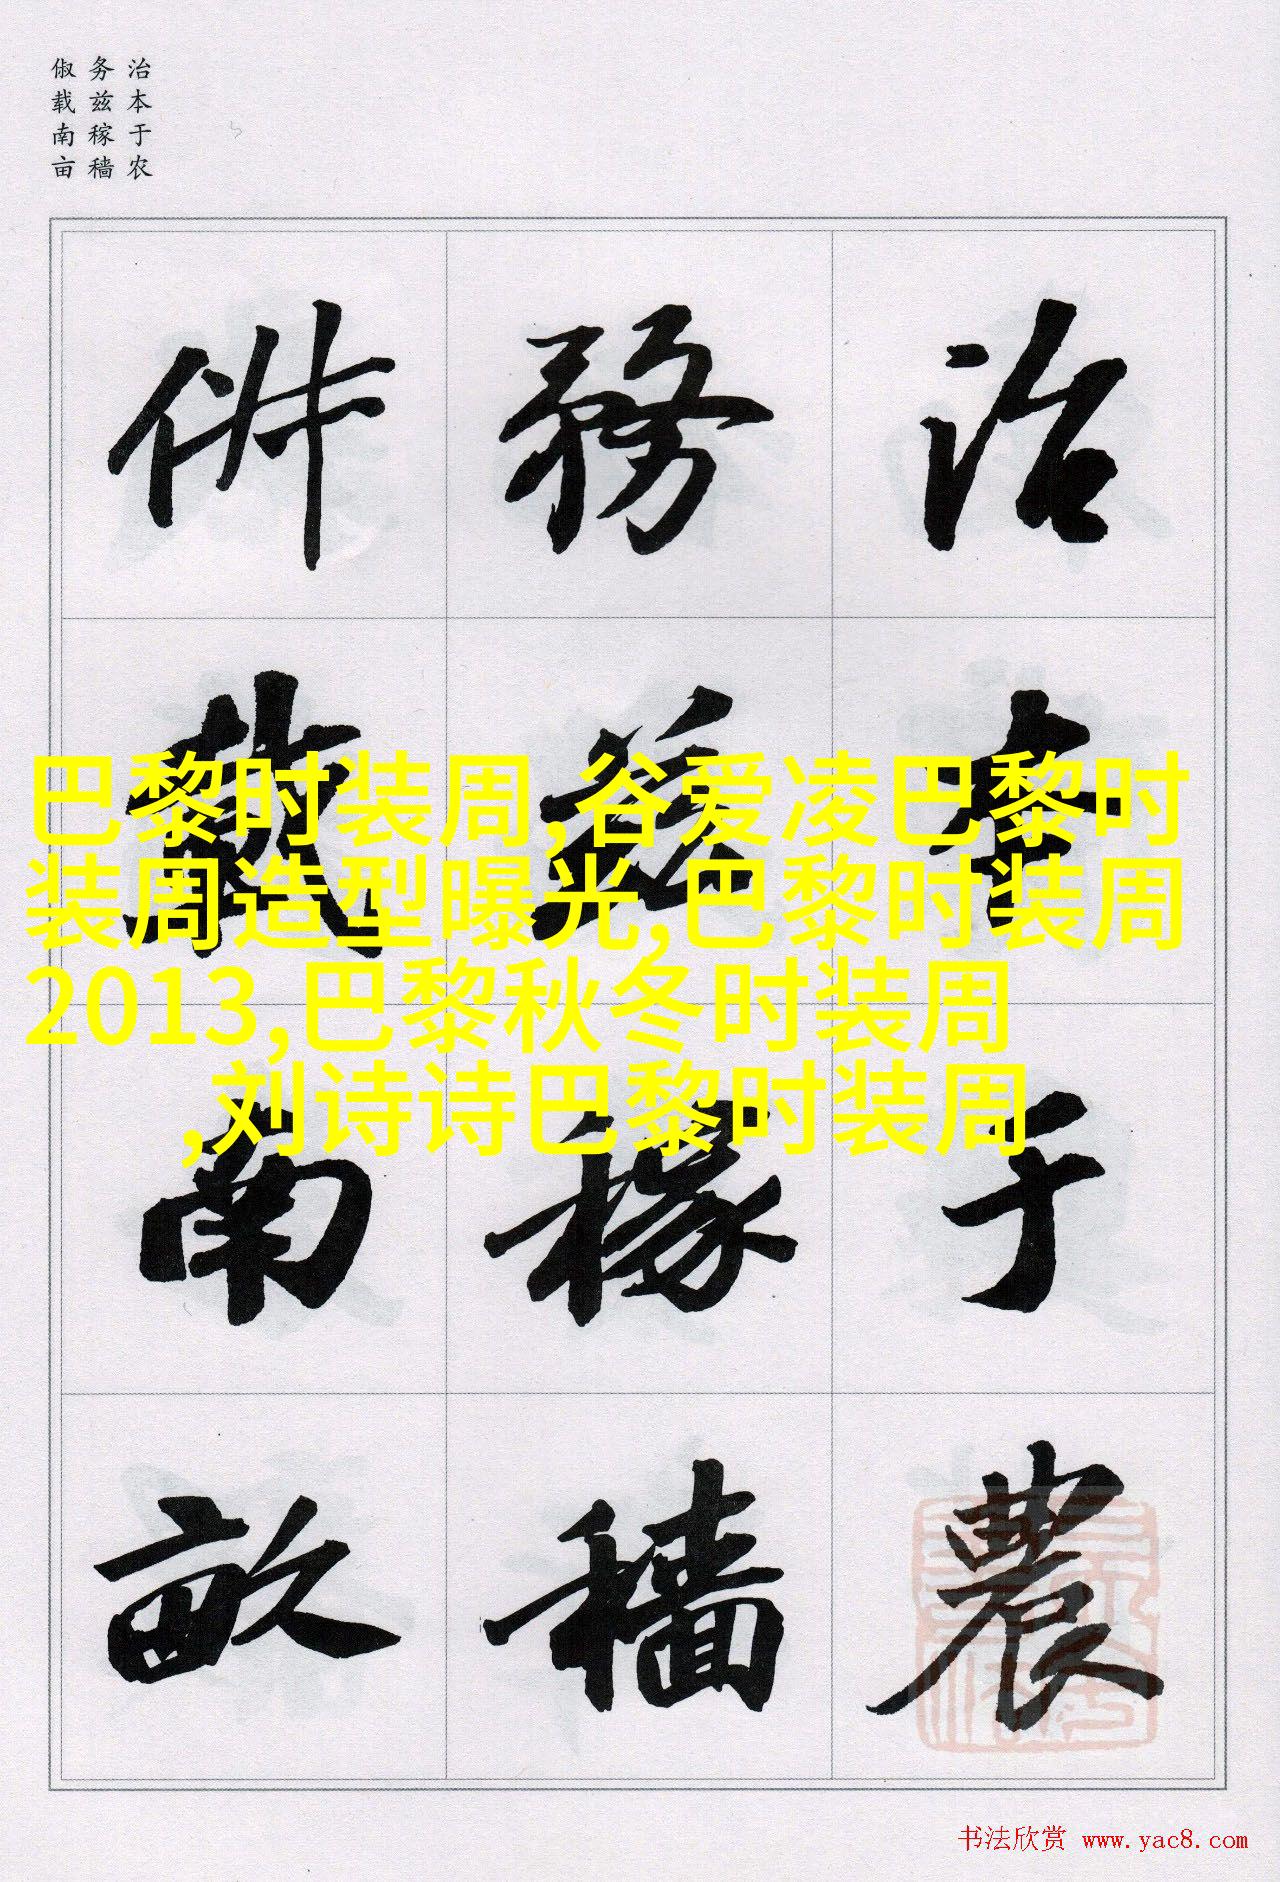 治本于农
务兹稼穑
俶载南亩
治本于農
務兹稼穡
俶載南畝
巴黎时装周,谷爱凌巴黎时
装周造型曝光,巴黎时装周
2013,巴黎秋冬时装周
,刘诗诗巴黎时装周
书法欣赏 www.yac8.com